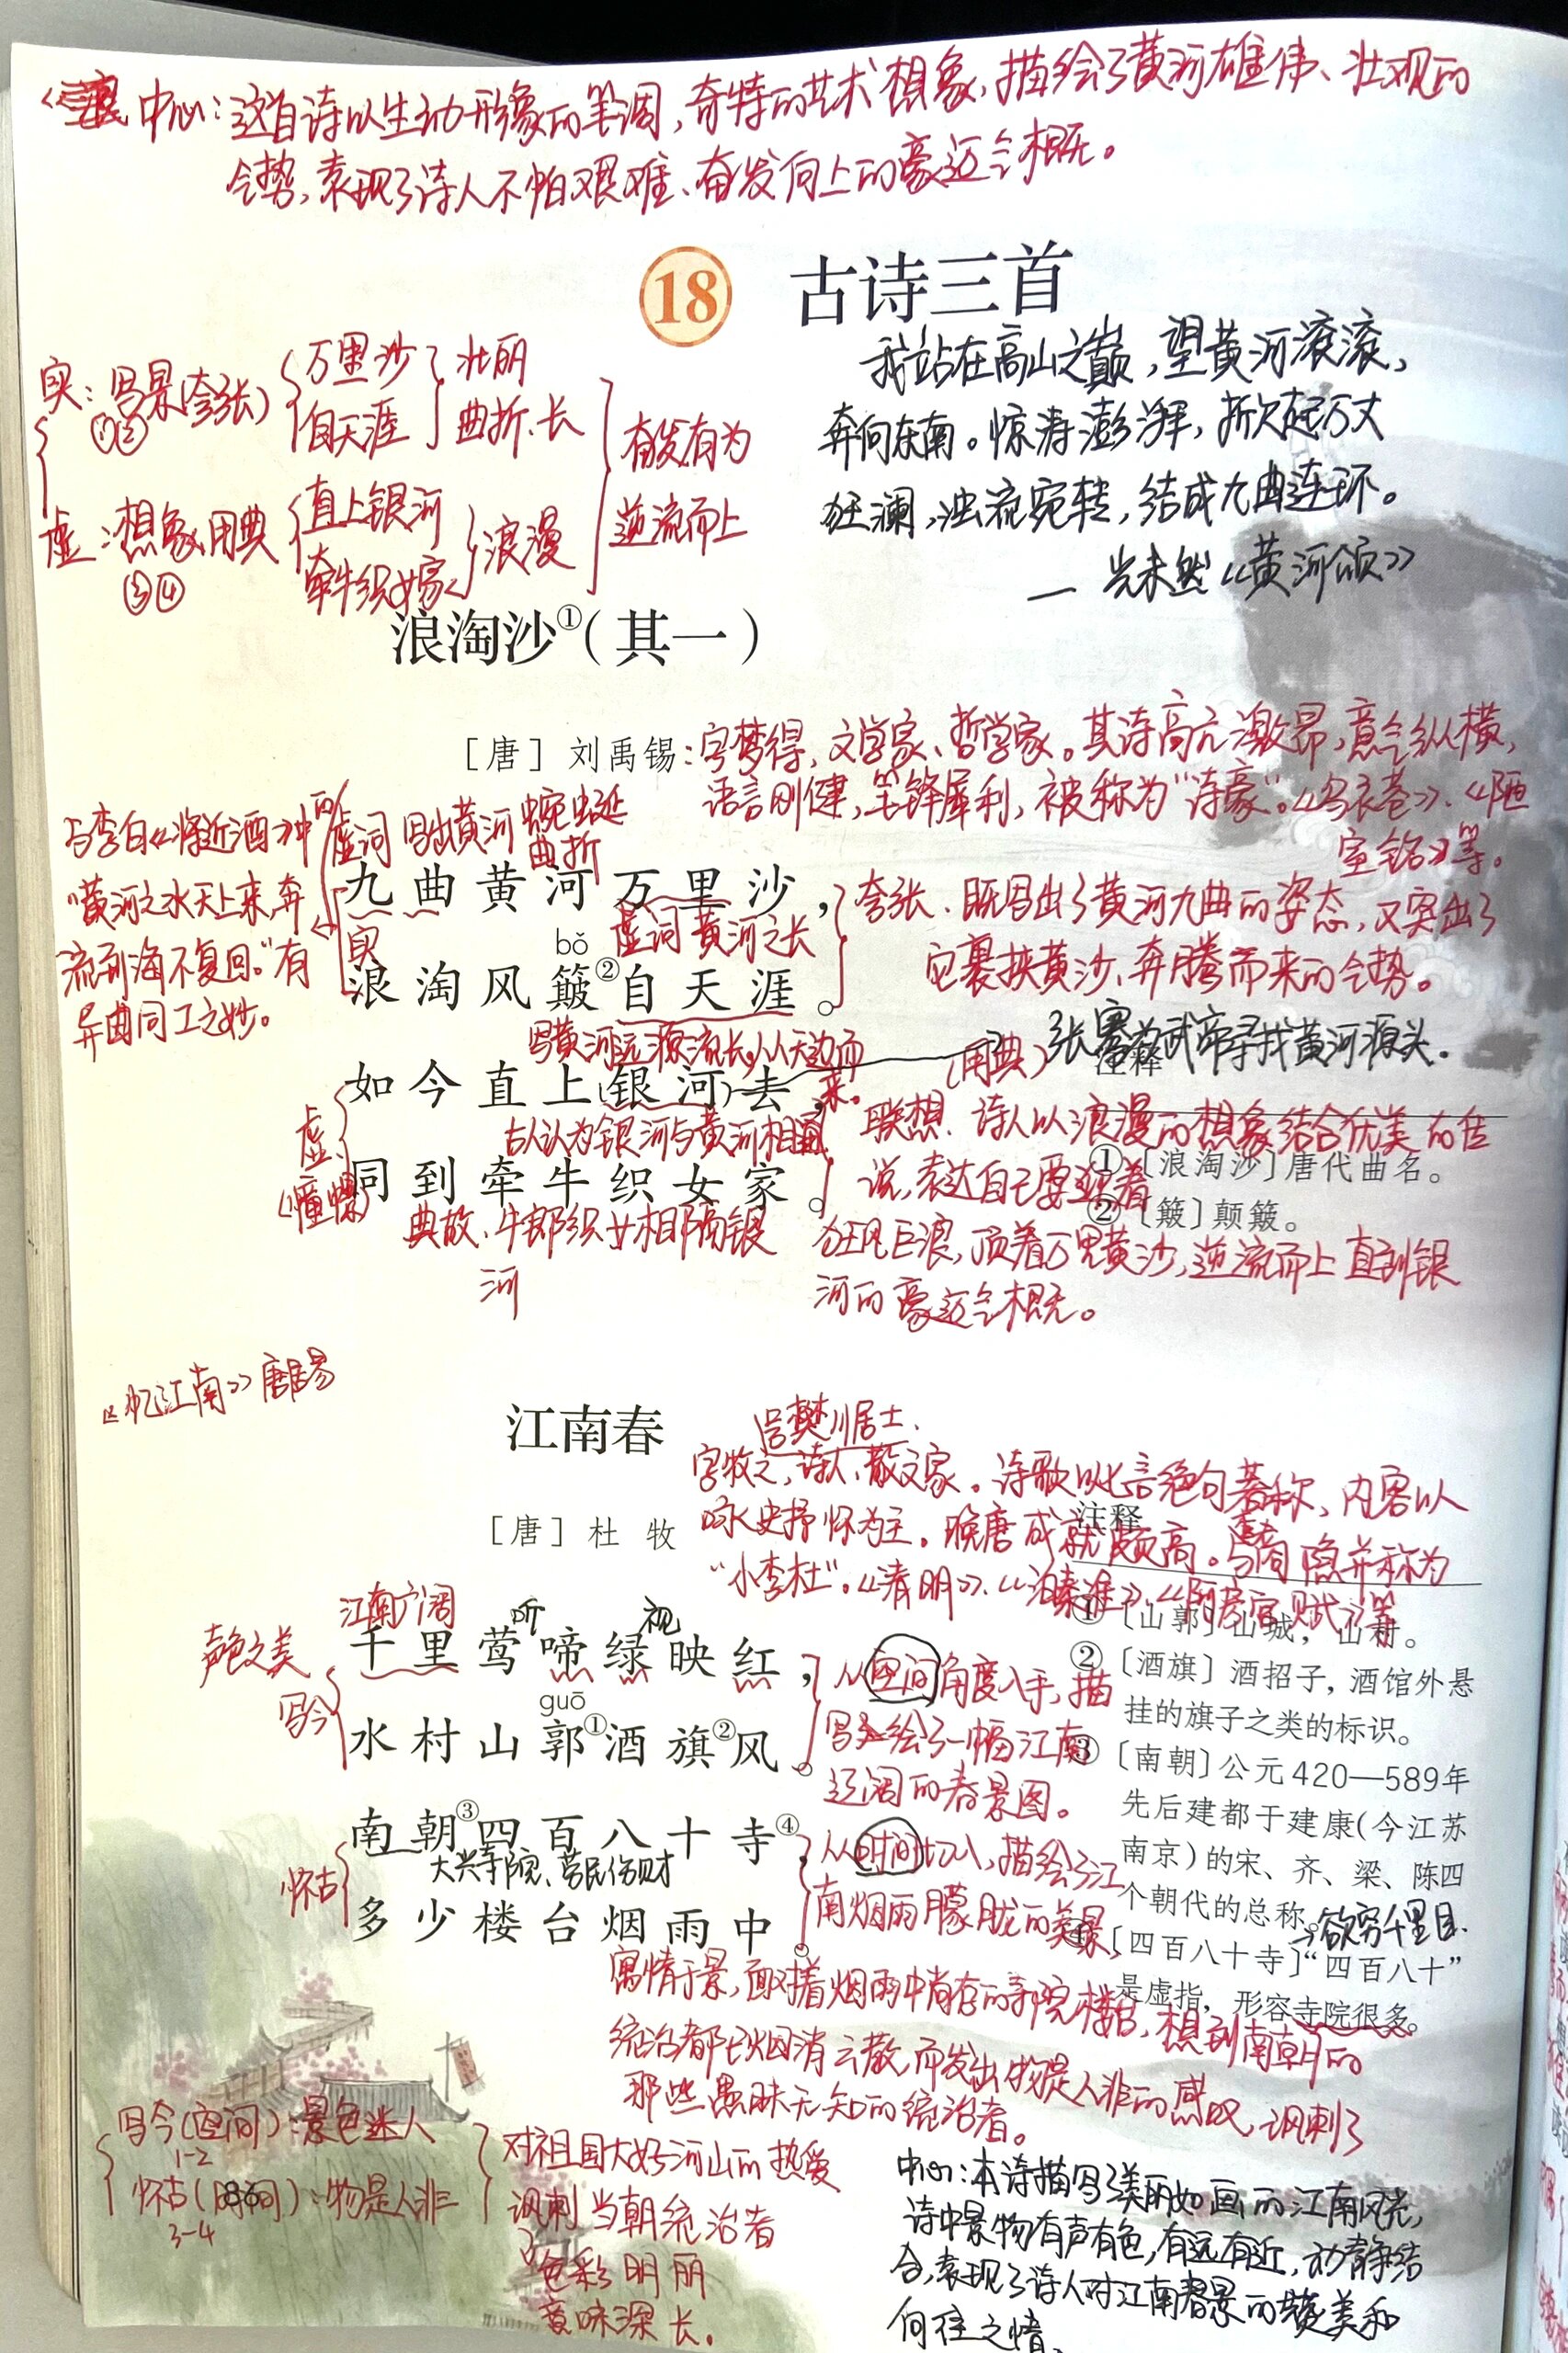 中心:这首诗以生动形象的笔调,奇特的艺术想象,描绘了黄河雄伟、壮观的
气势,表现了诗人不怕艰难、奋发向上的豪迈气概。
18 古诗三首
实:写景(夸张)
①②
万里沙
自天涯
壮丽
曲折、长
虚:想象、用典
③④
直上银河
牵牛织女家
浪漫
奋发有为
逆流而上
我站在高山之巅,望黄河滚滚,
奔向东南。惊涛澎湃,掀起万丈
狂澜,浊流宛转,结成九曲连环。
— 光未然《黄河颂》
浪淘沙①(其一)
[唐] 刘禹锡
:字梦得,文学家、哲学家。其诗高亢激昂,意气纵横,
语言刚健,笔锋犀利,被称为“诗豪”。《乌衣巷》、《陋
室铭》等。
与李白《将近酒》中的
“黄河之水天上来,奔
流到海不复回。”有
异曲同工之妙。
虚词 写出黄河蜿蜒
曲折
九曲黄河万里沙,
实
虚词 黄河之长
bǒ
浪淘风簸②自天涯。
夸张、既写出了黄河九曲的姿态,又突出了
它裹挟黄沙、奔腾而来的气势。
写黄河远源流长,从天边而
来。
如今直上(银河)去,
(用典)
张骞为武帝寻找黄河源头.
古人认为银河与黄河相通
虚
(憧憬)
同到牵牛织女家。
典故、牛郎织女相隔银
河
联想、诗人以浪漫的想象结合优美的传
说,表达自己要迎着
狂风巨浪,顶着万里黄沙,逆流而上直到银
河的豪迈气概。
注释
①〔浪淘沙〕唐代曲名。
②〔簸〕颠簸。
《忆江南》唐居易
江南春
[唐] 杜 牧
号樊川居士、
字牧之,诗人、散文家。诗歌以七言绝句著称、内容以
咏史抒怀为主。晚唐成就颇高。与李商隐并称为
“小李杜”。《清明》、《泊秦淮》、《阿房宫赋》等
江南广阔
听
视
声色之美
写今
千里莺啼绿映红,
guō
水村山郭①酒旗②风。
从空间角度入手,描
写绘了一幅江南
辽阔的春景图。
怀古
南朝③四百八十寺④,
大兴寺院、劳民伤财
多少楼台烟雨中。
从时间切入,描绘了江
南烟雨朦胧的美景,
寓情于景,面对着烟雨中尚存的寺院楼台,想到南朝的
统治都已烟消云散,而发出物是人非的感叹,讽刺了
那些愚昧无知的统治者。
注释
①〔山郭〕山城,山村。
②〔酒旗〕酒招子,酒馆外悬
挂的旗子之类的标识。
③〔南朝〕公元420—589年
先后建都于建康(今江苏
南京)的宋、齐、梁、陈四
个朝代的总称。
→欲穷千里目.
④〔四百八十寺〕“四百八十”
是虚指,形容寺院很多。
写今(空间):景色迷人
1-2
怀古(时间):物是人非
3-4
对祖国大好河山的热爱
讽刺当朝统治者
色彩明丽
意味深长。
中心:本诗描写了美丽如画的江南风光,
诗中景物有声有色,有远有近,动静结
合,表现了诗人对江南春景的赞美和
向往之情、